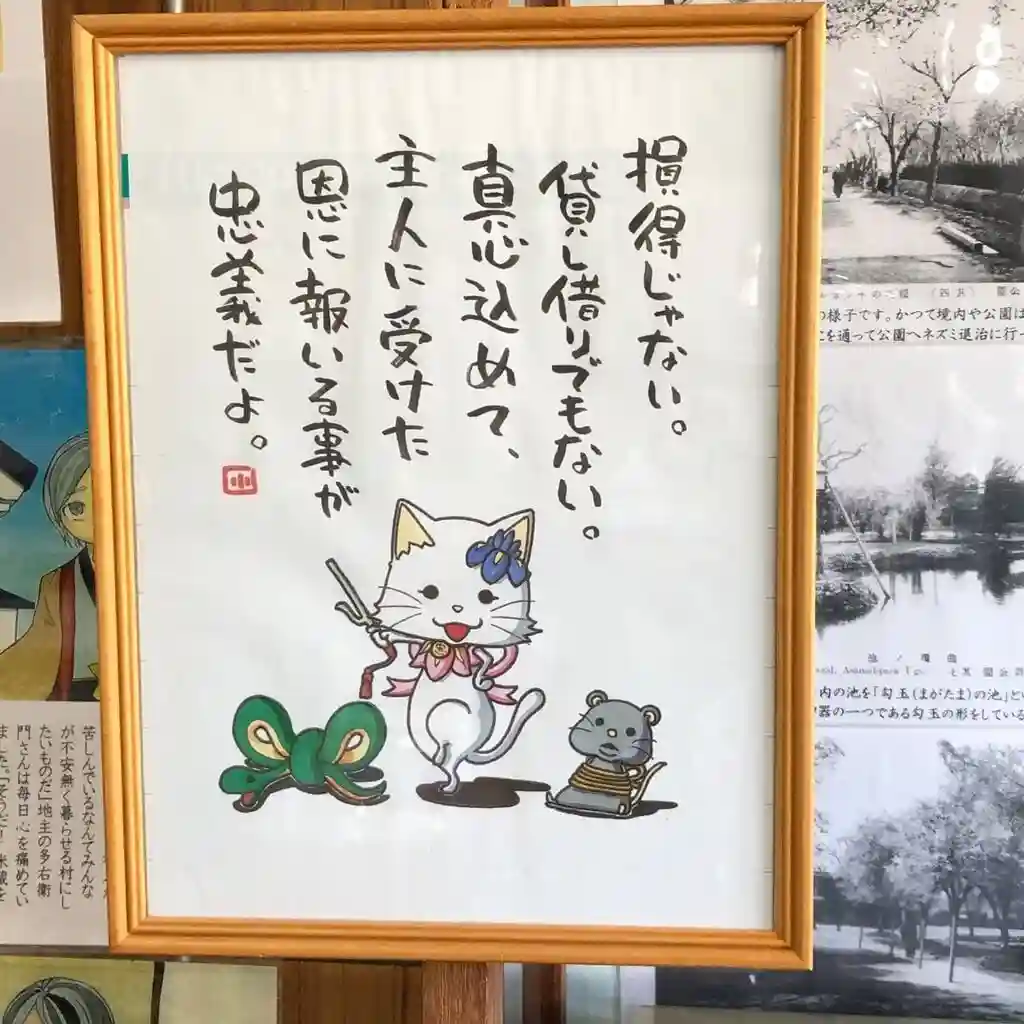 損得じゃない。
貸し借りでもない。
真心込めて、
主人に受けた
恩に報いる事が
忠義だよ。
の様子です。かつて境内や公園は
を通って公園へネズミ退治に行っ
内の池を「勾玉(まがたま)の池」とい
器の一つである勾玉の形をしている
苦しんでいるなんてみんな
が不安無く暮らせる村にし
たいものだ」地主の多右衛
門さんは毎日心を痛めてい
ました。